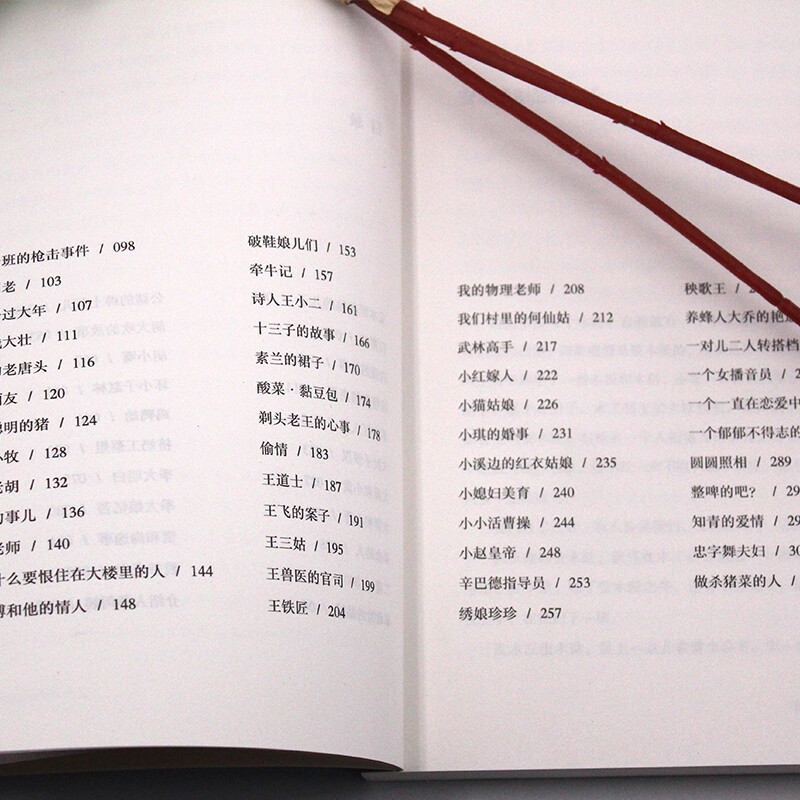 班的枪击事件 / 098
老 / 103
过大年 / 107
大壮 / 111
老唐头 / 116
友 / 120
明的猪 / 124
牧 / 128
老胡 / 132
事儿 / 136
老师 / 140
什么要恨住在大楼里的人 / 144
和他的情人 / 148
破鞋娘儿们 / 153
牵牛记 / 157
诗人王小二 / 161
十三子的故事 / 166
素兰的裙子 / 170
酸菜·黏豆包 / 174
剃头老王的心事 / 178
偷情 / 183
王道士 / 187
王飞的案子 / 191
王三姑 / 195
王兽医的官司 / 199
王铁匠 / 204
我的物理老师 / 208
我们村里的何仙姑 / 212
武林高手 / 217
小红嫁人 / 222
小猫姑娘 / 226
小琪的婚事 / 231
小溪边的红衣姑娘 / 235
小媳妇美育 / 240
小小活曹操 / 244
小赵皇帝 / 248
辛巴德指导员 / 253
绣娘珍珍 / 257
秧歌王 / 2
养蜂人大乔的艳
一对儿二人转搭档
一个女播音员 / 2
一个一直在恋爱中
一个郁郁不得志的
圆圆照相 / 289
整啤的吧？ / 29
知青的爱情 / 29
忠字舞夫妇 / 30
做杀猪菜的人 /